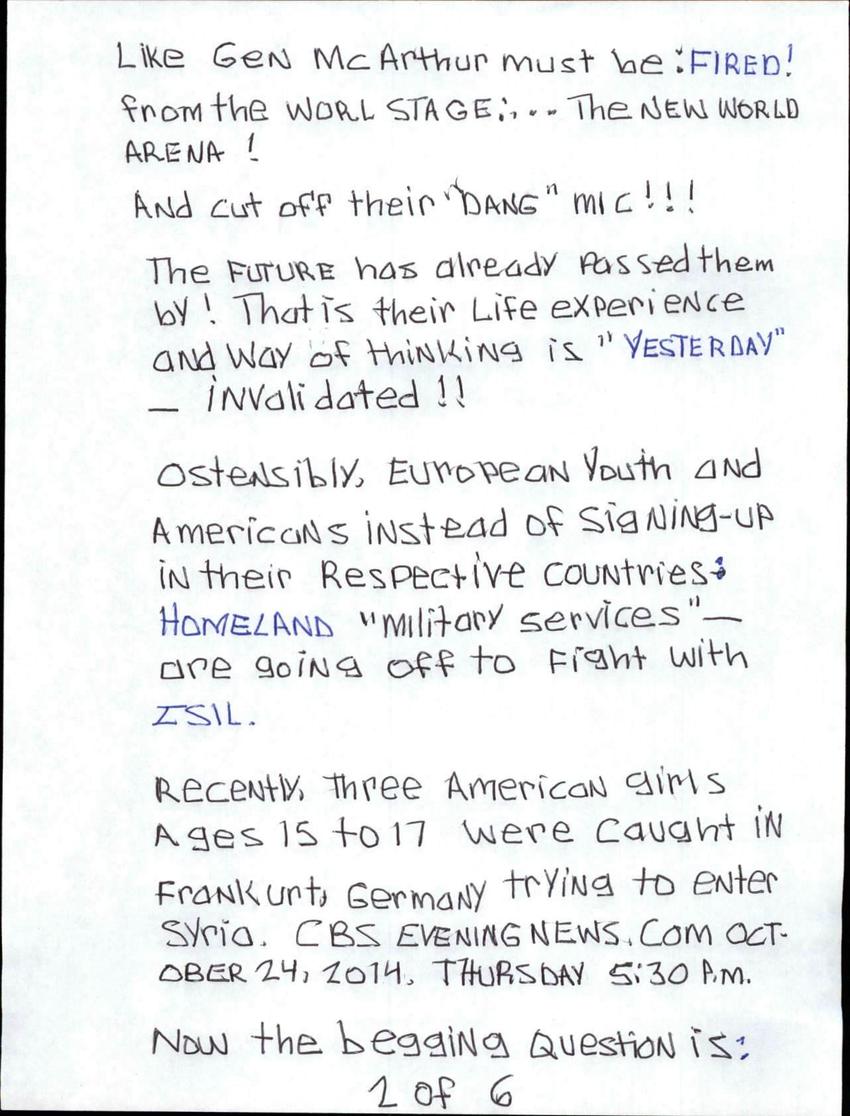 Like Gen McArthur must be : FIRED!
from the WORL STAGE:... The NEW WORLD
ARENA !
And cut off their "DANG" MIC!!!
The FUTURE has already passed them
by! That is their Life experience
and way of thinking is "YESTERDAY"
— invalidated !!
Ostensibly, European Youth and
Americans instead of signing-up
in their Respective countries:
HOMELAND "Military services"—
are going off to Fight with
ISIL.
Recently, three American girls
Ages 15 to 17 were caught in
Frankurt, Germany trying to enter
Syria. CBS EVENING NEWS.COM OCT-
OBER 24, 2014, THURSDAY 5:30 P.M.
Now the begging Question is:
1 of 6